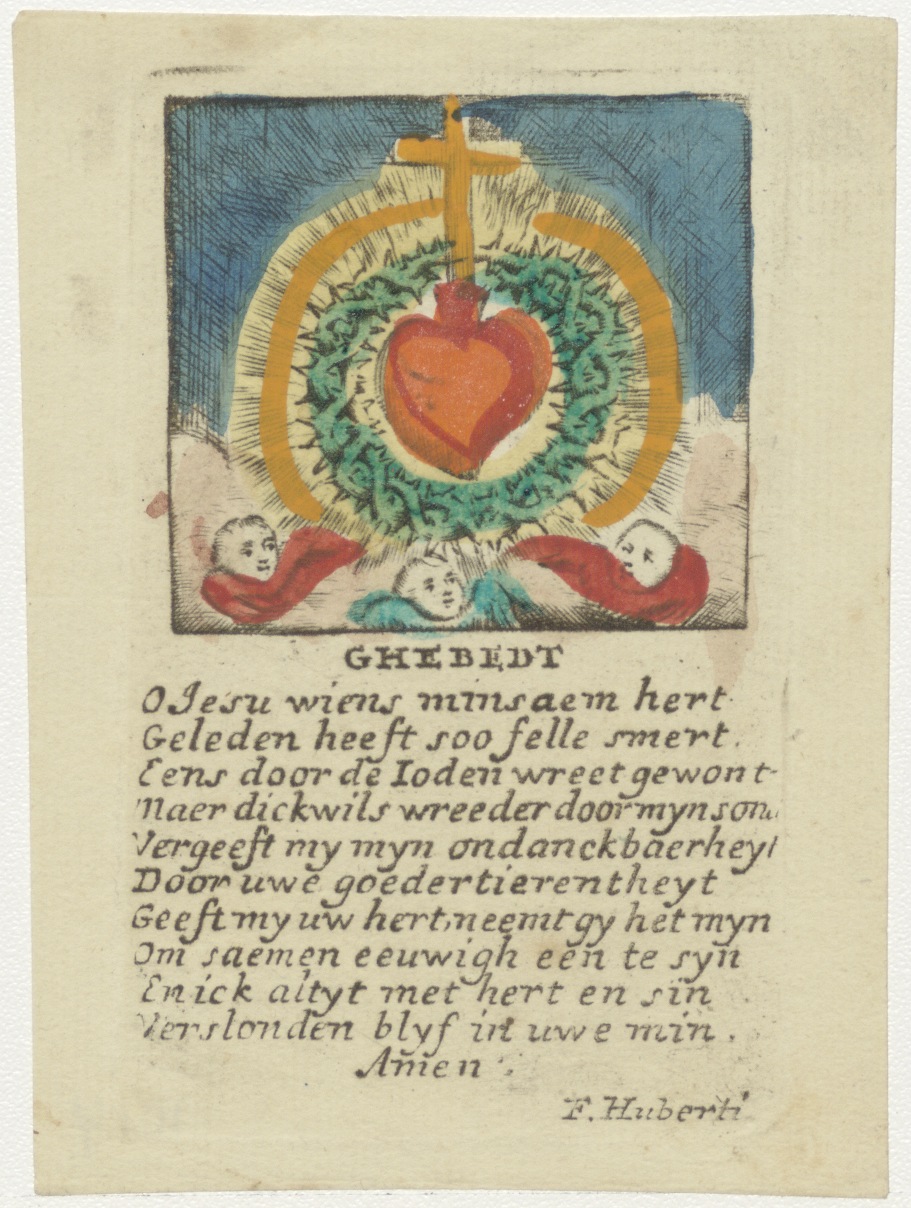 GHEBEDT
O Jesu wiens minsaem hert
Geleden heeft soo felle smert.
Eens door de Ioden wreet gewont
Maer dickwils wreeder door myn
Vergeeft my myn ondanckbaerheyt
Door uwe goedertierentheyt
Geeft my uw hert, neemt gy het myn
Om saemen eeuwigh een te syn
En ick altyt met hert en sin
Verslonden blyf in uwe min.
Amen.
F. Huberti